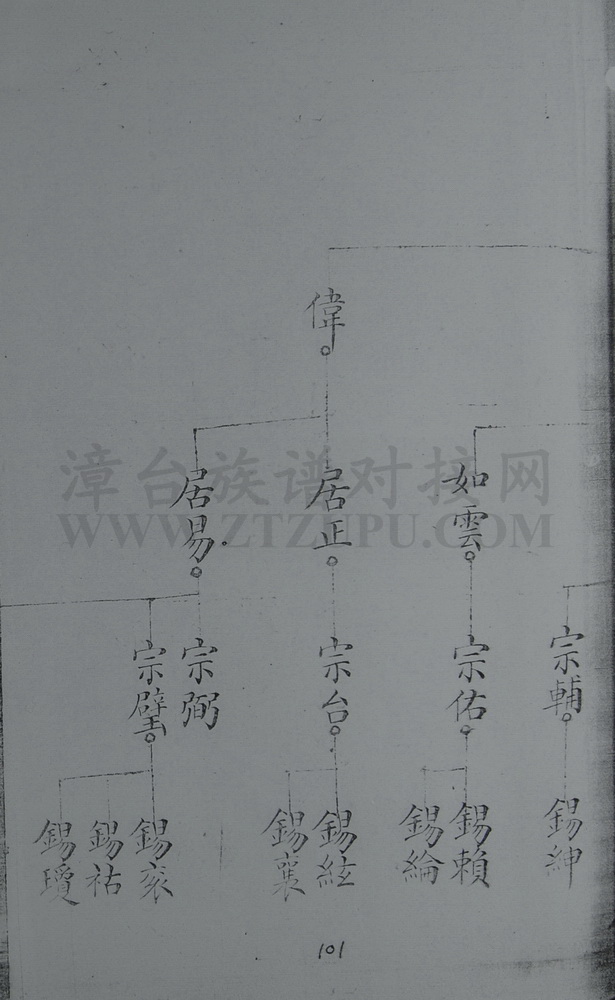 偉
如雲
居正
居易
宗輔
宗佑
宗台
宗弼
宗璧
錫紳
錫賴
錫綸
錫紘
錫襄
錫衮
錫祜
錫瓊
101
漳台族谱对接网
WWW.ZTZUPU.COM